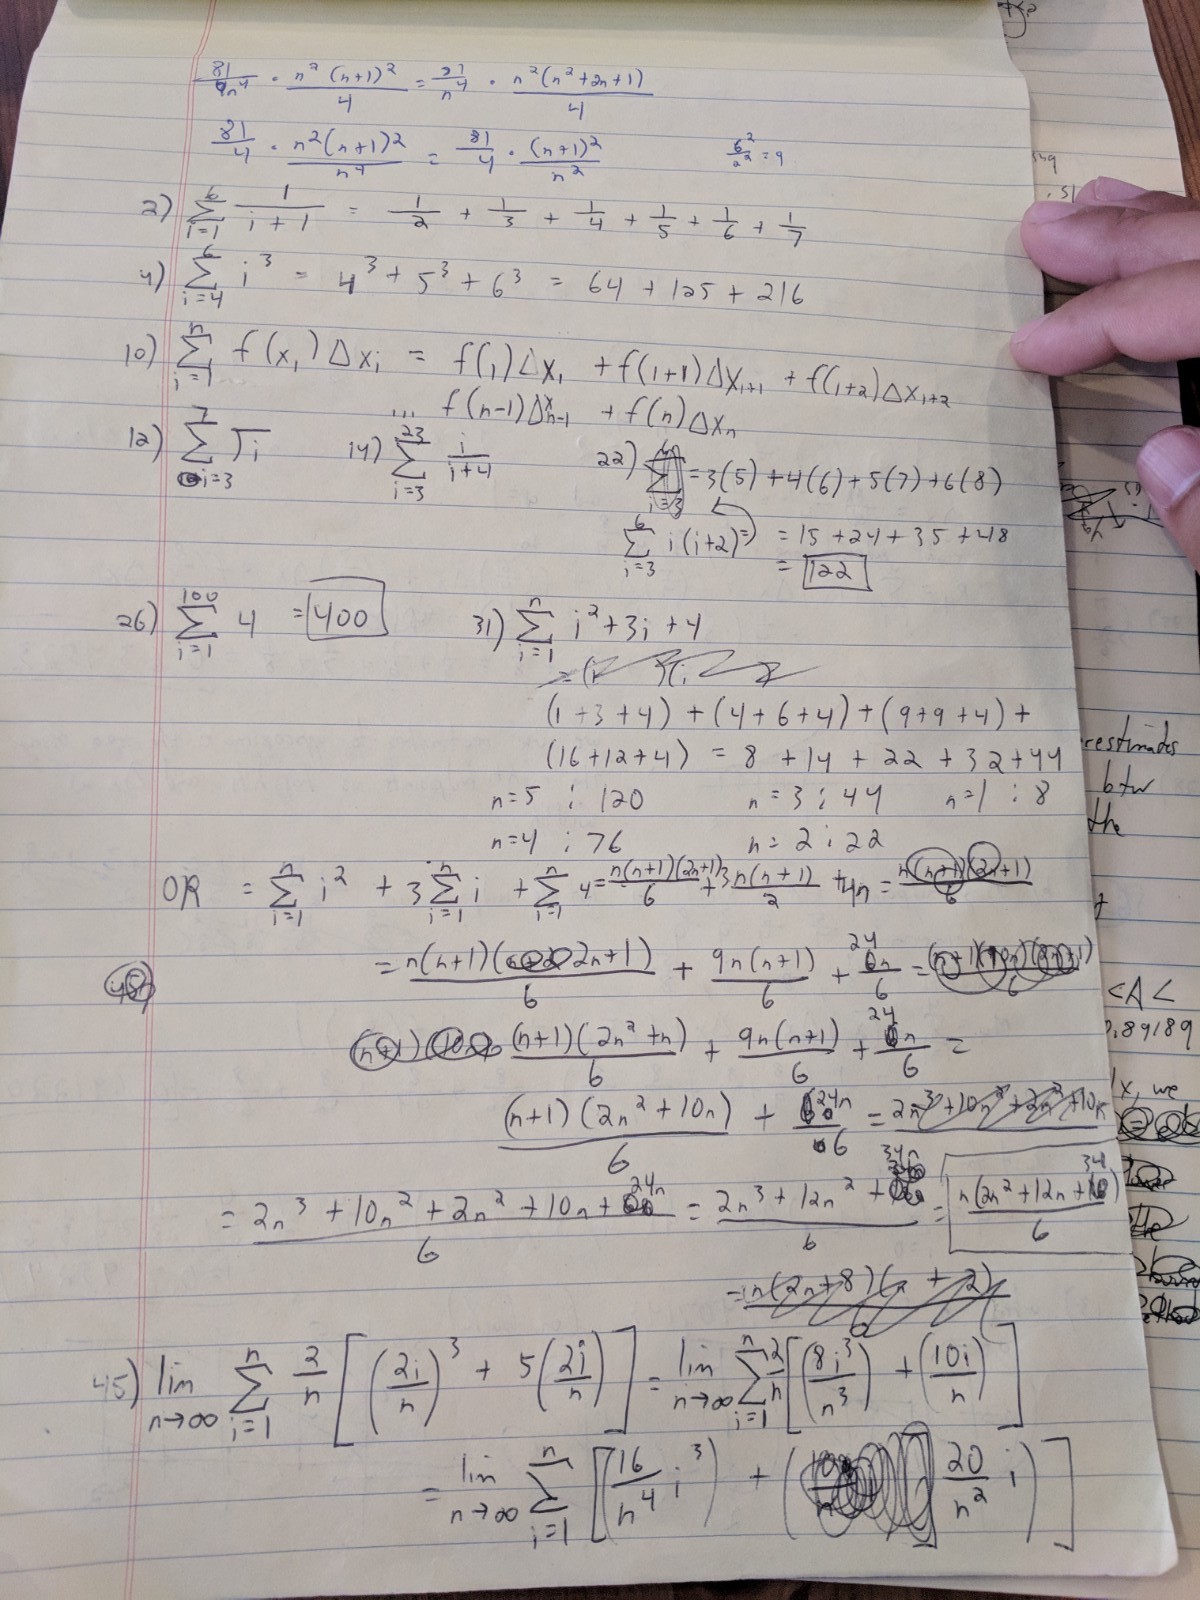 81/9n⁴ · n²(n+1)²/4 = 27/n⁴ · n²(n²+2n+1)/4
81/4 · n²(n+1)²/n⁴ = 81/4 · (n+1)²/n²
2) Σ_{i=1}^{6} 1/(i+1) = 1/2 + 1/3 + 1/4 + 1/5 + 1/6 + 1/7
4) Σ_{i=4}^{6} i³ = 4³ + 5³ + 6³ = 64 + 125 + 216
10) Σ_{i=1}^{n} f(x_i) Δx_i = f(1)Δx_1 + f(1+1)Δx_{1+1} + f(1+2)Δx_{1+2}
... f(n-1)Δx_{n-1} + f(n)Δx_n
12) Σ_{i=3}^{7} √i 14) Σ_{i=3}^{23} i/(i+4) 22) = 3(5) + 4(6) + 5(7) + 6(8)
Σ_{i=3}^{6} i(i+2) = 15 + 24 + 35 + 48
= 122
26) Σ_{i=1}^{100} 4 = 400 31) Σ_{i=1}^{n} i² + 3i + 4
(1+3+4) + (4+6+4) + (9+9+4) +
(16+12+4) = 8 + 14 + 22 + 32 + 44
n=5 : 120 n=3 : 44 n=1 : 8
n=4 : 76 n=2 : 22
OR = Σ_{i=1}^{n} i² + 3Σ_{i=1}^{n} i + Σ_{i=1}^{n} 4 = n(n+1)(2n+1)/6 + 3n(n+1)/2 + 4n = n(n+1)(2n+1)/6
= n(n+1)(2n+1)/6 + 9n(n+1)/6 + 24n/6 =
(n+1)(2n²+n)/6 + 9n(n+1)/6 + 24n/6 =
(n+1)(2n²+10n)/6 + 24n/6 = 2n³+10n²+2n²+10n
= (2n³+10n²+2n²+10n+24n)/6 = (2n³+12n²+34n)/6 = n(2n²+12n+34)/6
= n(2n+8)(n+2)
45) lim_{n→∞} Σ_{i=1}^{n} 2/n [(2i/n)³ + 5(2i/n)] = lim_{n→∞} Σ_{i=1}^{n} 2/n [(8i³/n³) + (10i/n)]
= lim_{n→∞} Σ_{i=1}^{n} [(16/n⁴ i³) + (20/n² i)]
restimates
btw
the
<A<
0.89189
we
the